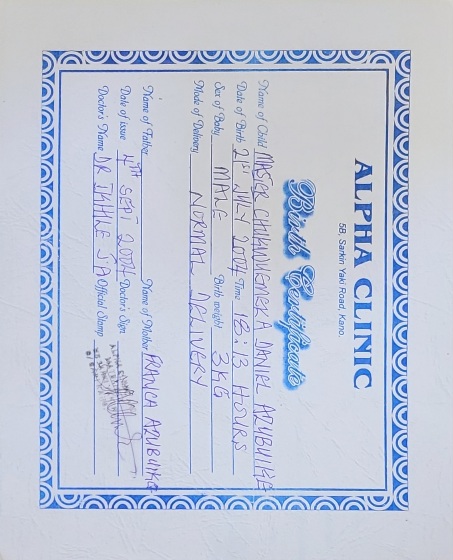 ALPHA CLINIC
5B, Sarkin Yaki Road, Kano.
Birth Certificate
Name of Child MASTER CHUKWUEMEKA DANIEL AZUBUIKE
Date of Birth 21ST JULY 2004 Time 18:13 HOURS
Sex of Baby MALE Birth weight 3KG
Mode of Delivery NORMAL DELIVERY
Name of Father Name of Mother FRANCA AZUBUIKE
Date of issue 4TH SEPT 2004 Doctor's Sign.
Doctor's Name DR Official Stamp